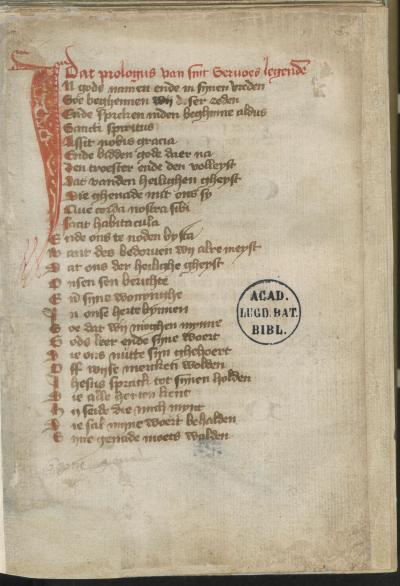 Dat prologus van sint Servoes legende
IN gods namen ende in synen vreden
Soe beghynnen wy deser reden
Ende spreken inden beghynne aldus
Sancti spiritus
Assit nobis gracia
Ende bidden gode daer na
Den troester ende den volleyst
Dat vanden heilighen gheyst
Die ghenade mit ons sy
Que corda nostra sibi
faciat habitacula
Ende ons te noden by sta
want des bedorven wy alre meyst
Dat ons der heilighe gheyst
Onsen sen berichte
En syne
In onse herte bynnen
Soe dat wy moghen mynnen
Gods leer ende syne woert
Die ons nutte syn ghehoert
Off wyse mercken wolden
Jhesus sprack tot synen holden
Die alle herten kent
Hy seide die mich mynt
Die sal myne woert behalden
Ende myne genade moets walden
ACAD.
LUGD. BAT.
BIBL.